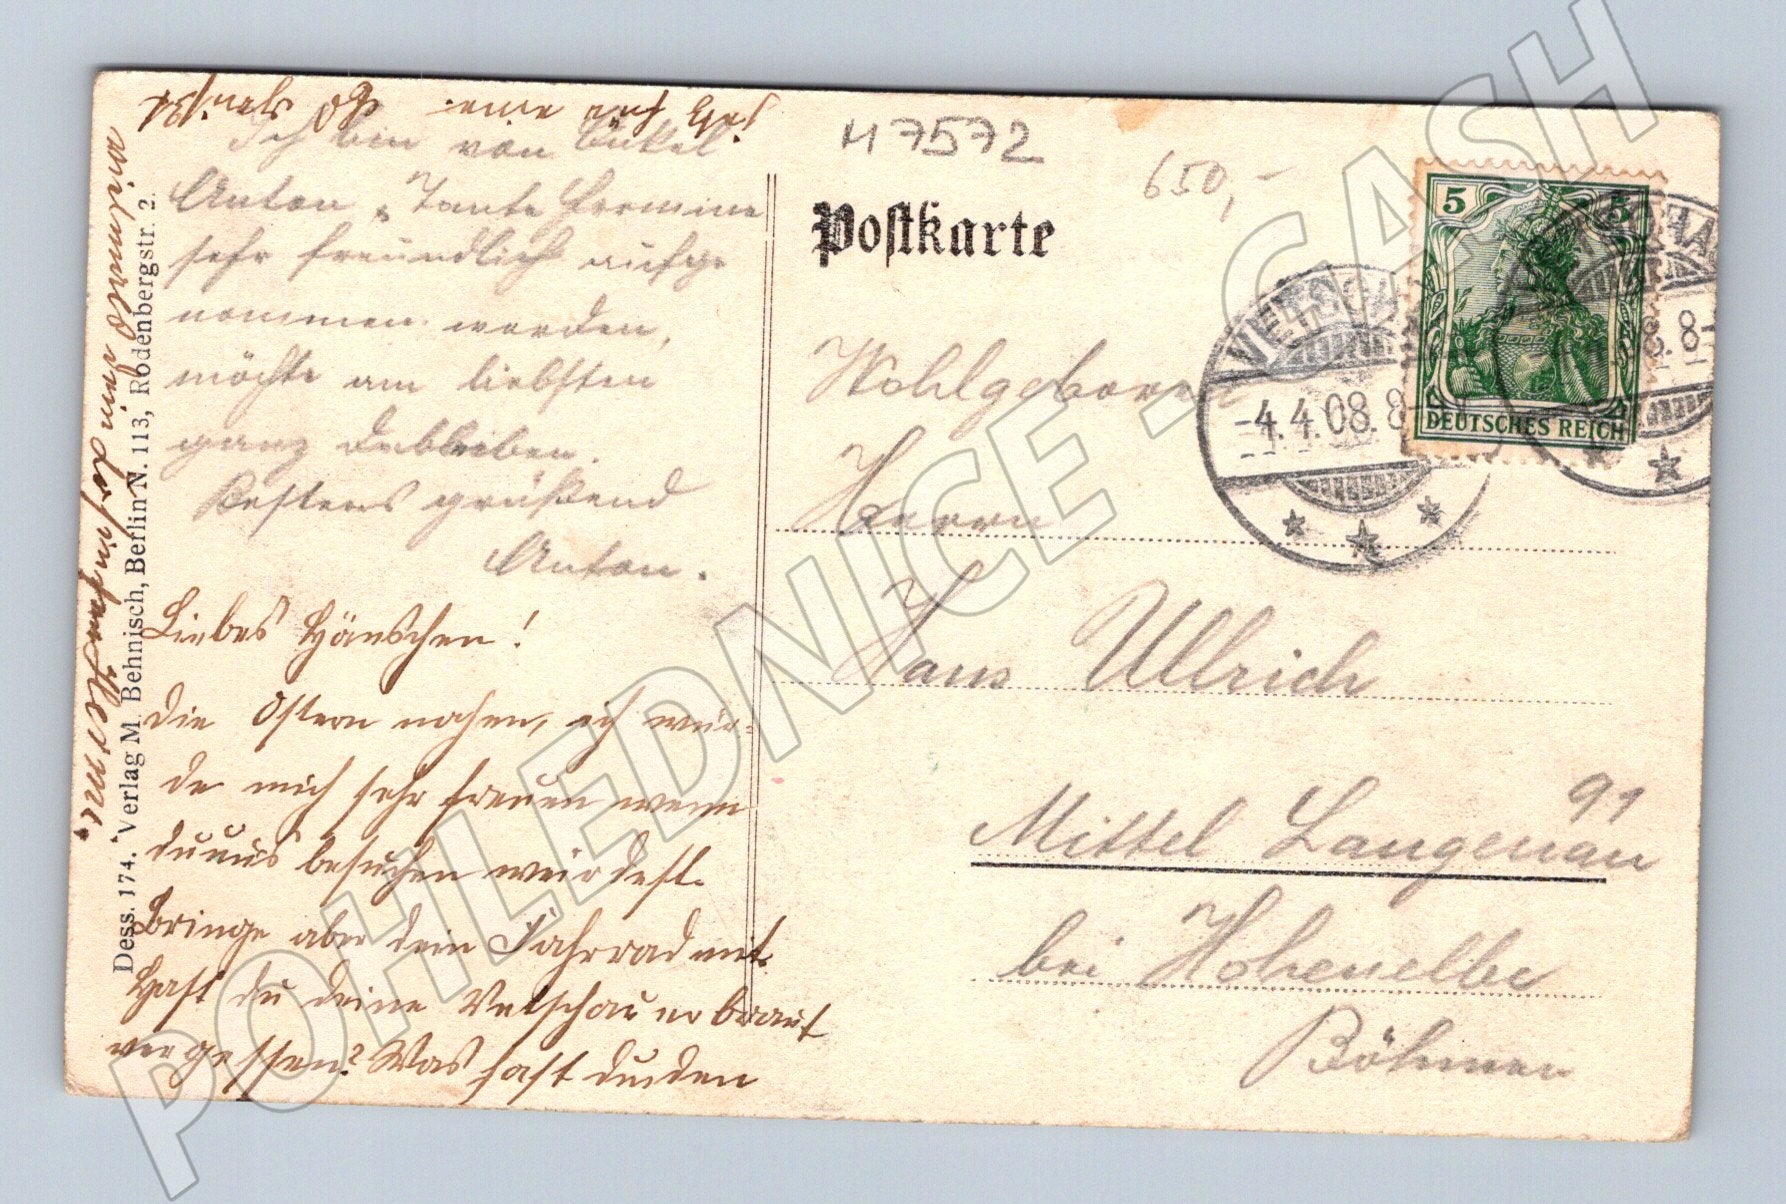 H 7572
650,-
Postkarte
5 5
DEUTSCHES REICH
VETSCHAU
-4.4.08. 8-
8. 8-
Wohlgeboren
Herrn
Hans Ullrich
Mittel Langenau 91
bei Hohenelbe
Böhmen
Ich bin von Onkel
Anton u. Tante Hermine
sehr freundlich aufge
nommen worden,
möchte am liebsten
ganz dableiben.
Bestens grüßend
Anton.
Liebes Hänschen!
die Ostern nahen, ich wür-
de mich sehr freuen wenn
du uns besuchen würdest.
Bringe aber dein Fahrrad mit.
Hast du deine Vetschauer Braut
vergessen? Was hast du den
Dess. 174. Verlag M. Behnisch, Berlin N. 113, Rodenbergstr. 2.
POHLEDNICE - CASH